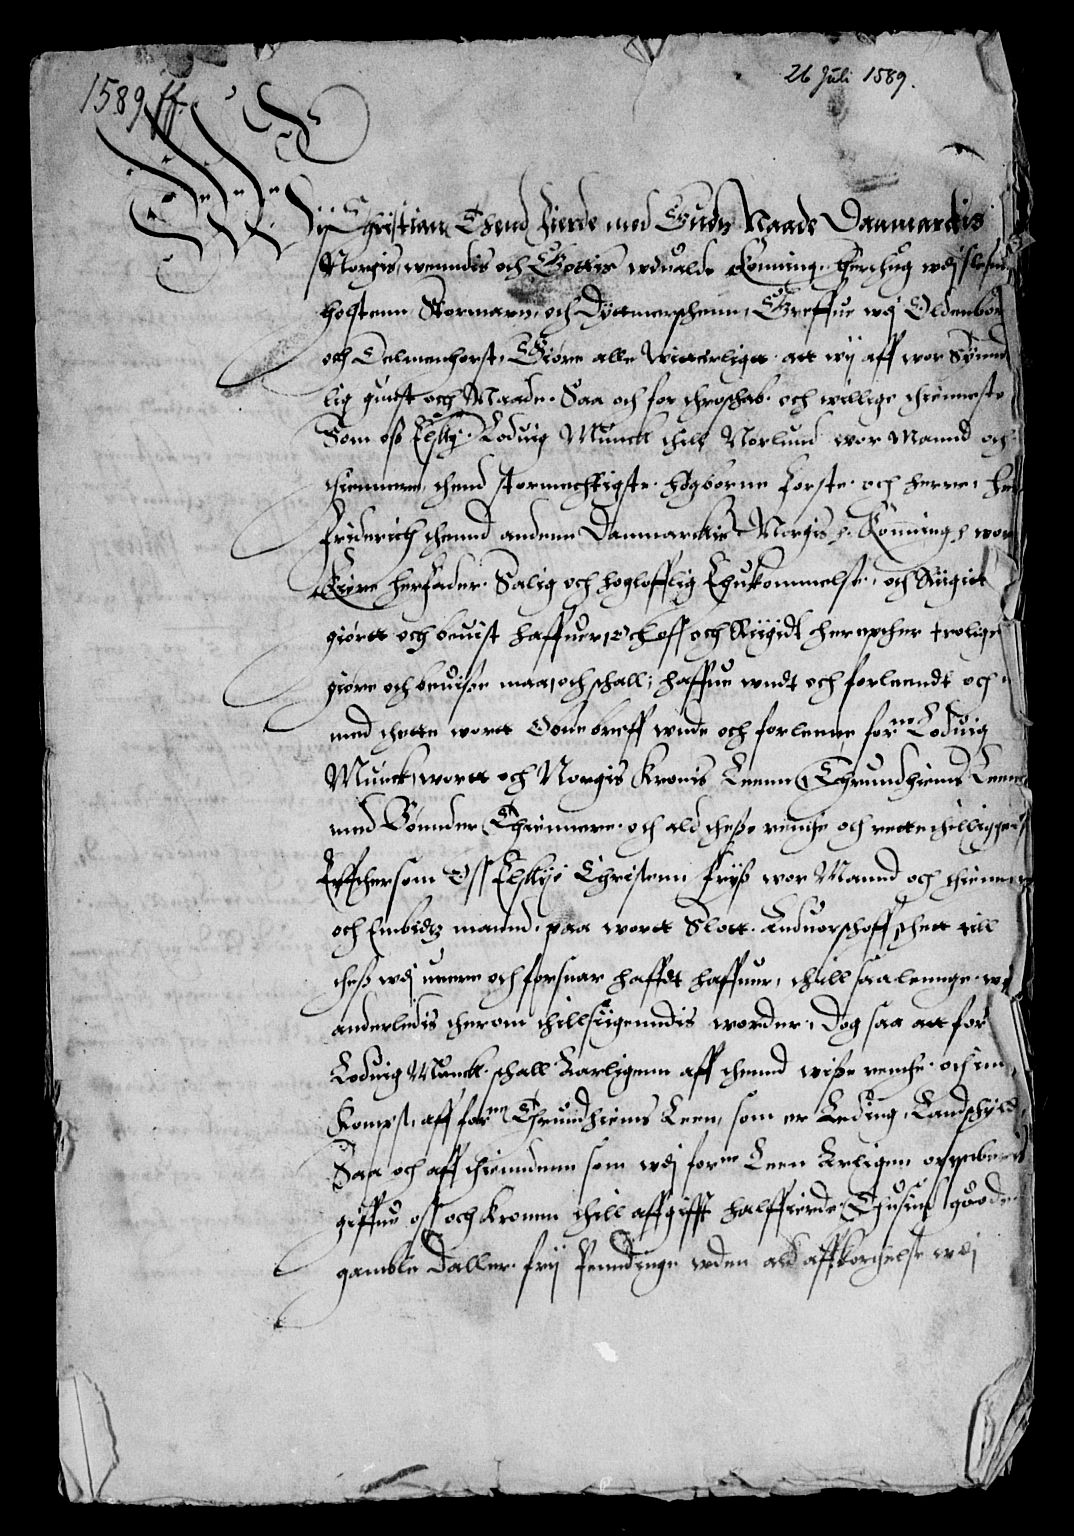 1589 ff.
26 Juli 1589.
Wij Christian Thend fierde med Gudtz Naade Danmarckis
Norgis, wenndis och Gottis wduallde Konning. Hertzug wdj Slesuig
holstenn Stormarn, och Dyttmerschenn, Greffue wdj Oldenborg
och Delmenhorst, Giøre alle Witterligtt. att wij aff wor Synnder-
lig gunst och Naade. Saa och for throschab. och willige thienneste
Som oß Elskl. Lodvig Munck thill Nørlund wor Mannd och
thiennere, thend stormechtigste. høgborne Første. och herre, her
Friderich thennd andenn Danmarckis Norgis etc. Konning etc. wor
Kiere herfader. Salig och hoglofflig Ihukommelse, och Riigitt
giørtt och beuist haffuer, och oss och Riigidt her epther trolige
giøre och beuiße maa, och schall, haffue wndt och forlenndt och
med thette wortt obne breff wnde och forlenne forne Lodvig
Munck, wortt och Norgis Kronis Leenn Thrundhiems Leenn
med Bønnder Thiennere. och ald theße renthe och rette thilliggelse
Effthersom Oss Elskl. Christenn Friiß wor Mannd och thiennere
och Embidtz mannd. paa wortt Slott. Anduorschoff thett till
theß wdj were och forsuar hafft haffuer, thill saalennge wij
anderledis therom thillsiigenndis worder, Dog saa att forne
Lodvig Munck. schall Aarligenn aff thennd wiße renthe. och ind-
Kompst, aff forne Thrundhiems Leen, som er Leding, Landschyld,
Saa och aff thiendenn som wdj forne Leen Arligen oppeberis
giffue oss och Kronen thill affgifft halffierde Thusind goode
gamble Daller. frij Penndinge wden ald affkortelse wdj